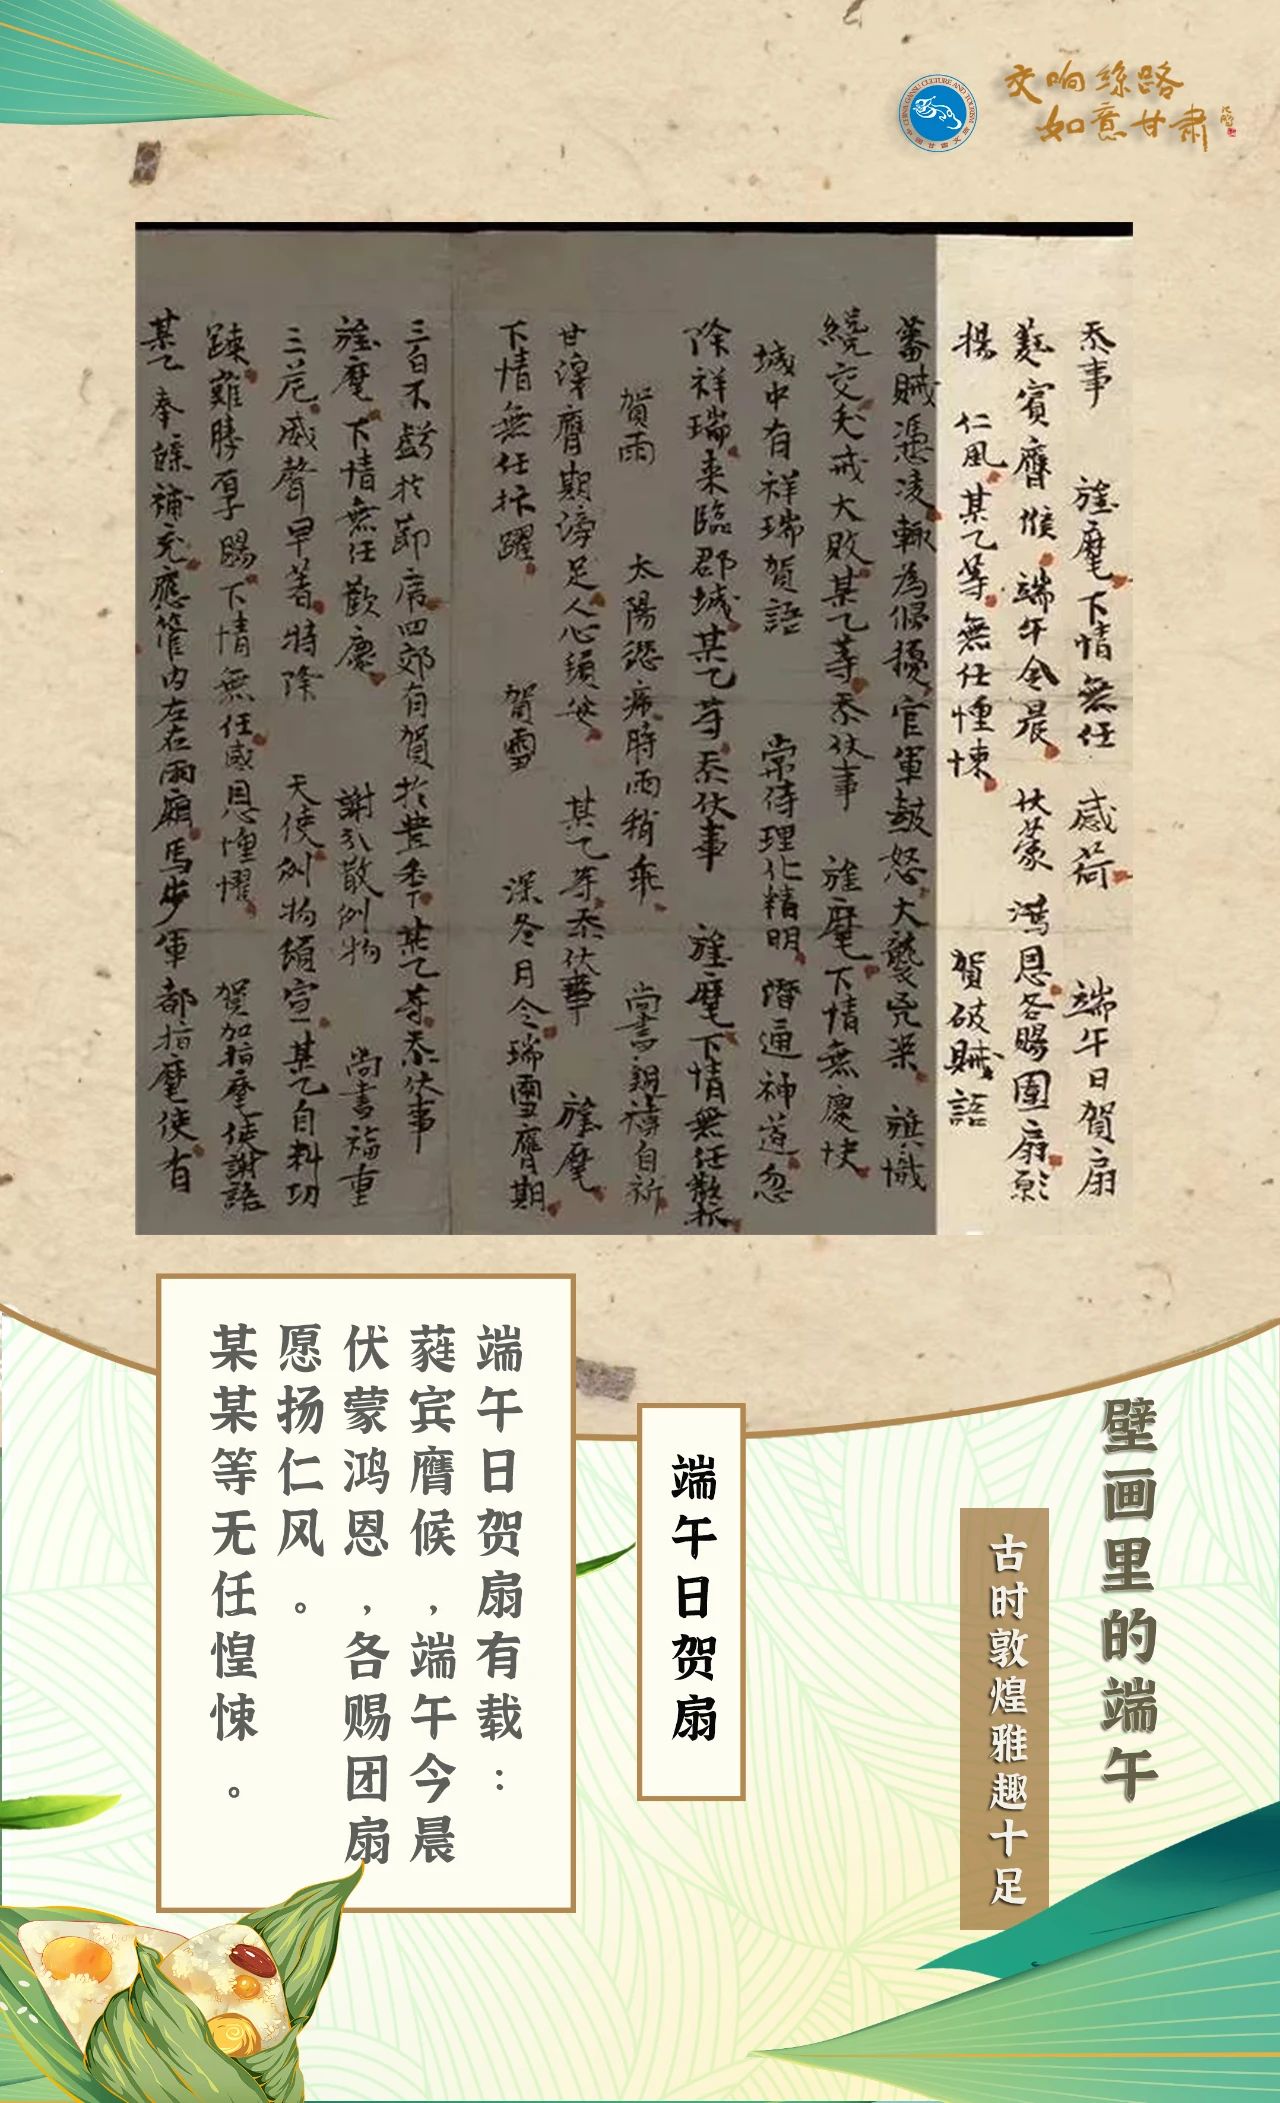 交响丝路
如意甘肃
CHINA GANSU CULTURE AND TOURISM
中国甘肃文旅
忝事 旌麾下情無任 感荷 端午日賀扇
蕤賓膺候 端午令晨 伏蒙 鴻恩各賜團扇彰
揚 仁風某乙等無任惶悚 賀破賊語
蕃賊憑凌輙為侵擾官軍鼓怒大襲兇渠 旗幟
繞交天戒大敗某乙等忝伏事 旌麾下情無慶快
城中有祥瑞賀語 常侍理化精明潛通神道忽
除祥瑞来臨郡城某乙等忝伏事 旌麾下情無任
賀雨 太陽愆痹時雨稍乖 尚書親禱自祈
甘澤膺期滂足人心頓安 某乙等忝伏事 旌麾
下情無任抃躍 賀雪 深冬月令瑞雪膺期
三白不虧於節序四郊有賀於豊年下某乙等忝伏事
旌麾下情無任歡慶 謝分散例物 尚書福重
三危威聲早著特降 天使例物頒宣某乙自料功
踈難勝厚賜下情無任感恩惶懼 賀加指麾使謝語
某乙奉牒補充應管内左右兩廂馬步軍都指麾使有
端午日贺扇有载：
蕤宾膺候，端午今晨
伏蒙鸿恩，各赐团扇
愿扬仁风。
某某等无任惶悚。
端午日贺扇
壁画里的端午
古时敦煌雅趣十足